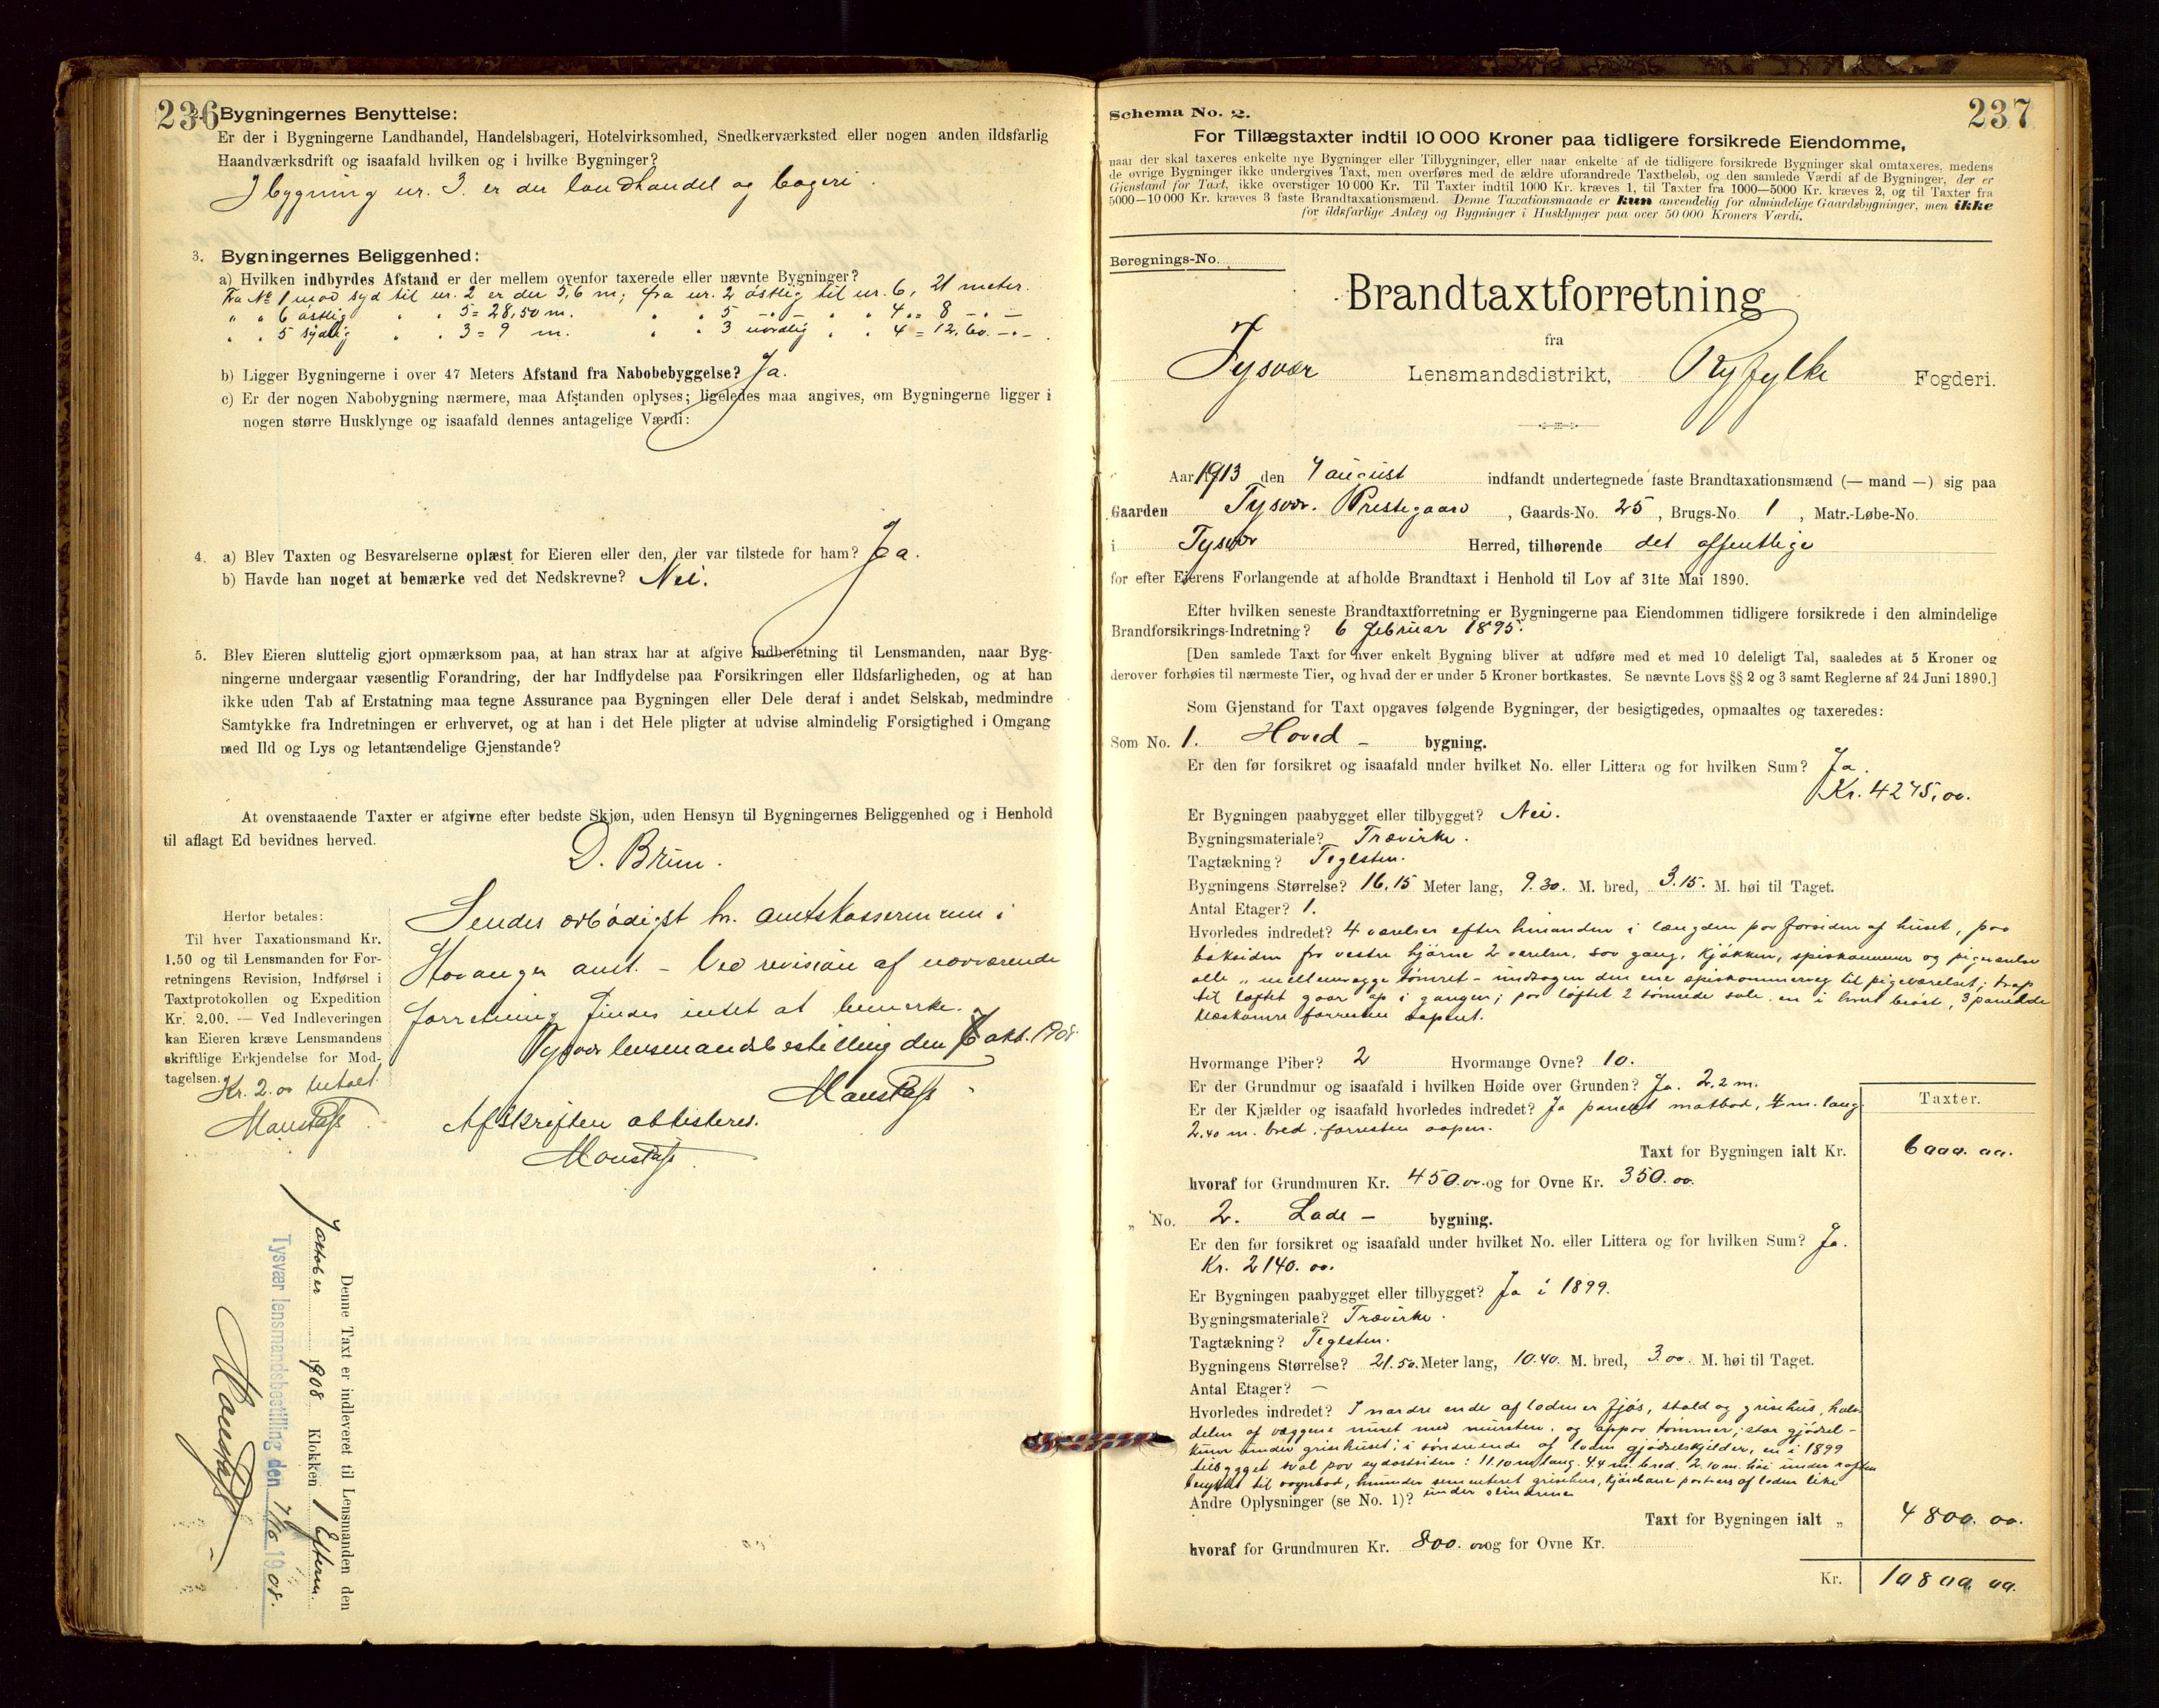 236
2. Bygningernes Benyttelse:
Er der i Bygningerne Landhandel, Handelsbageri, Hotelvirksomhed, Snedkerværksted eller nogen anden ildsfarlig
Haandværksdrift og isaafald hvilken og i hvilke Bygninger?
I bygning nr. 3. er der landhandel og bageri.
3. Bygningernes Beliggenhed:
a) Hvilken indbyrdes Afstand er der mellem ovenfor taxerede eller nævnte Bygninger?
Fra No 1 mod syd til nr. 2 er der 5,6 m; fra nr. 2 østlig til nr. 6, 21 meter.
" " 6 østlig " " 5 = 28,50 m. " " 5 -"- " " 4 = 8 -"-
" " 5 sydlig " " 3 = 9 m. " " 3 nordlig " " 4 = 12,60. -"-
b) Ligger Bygningerne i over 47 Meters Afstand fra Nabobebyggelse? Ja.
c) Er der nogen Nabobygning nærmere, maa Afstanden oplyses; ligeledes maa angives, om Bygningerne ligger i
nogen større Husklynge og isaafald dennes antagelige Værdi:
4. a) Blev Taxten og Besvarelserne oplæst for Eieren eller den, der var tilstede for ham? Ja.
b) Havde han noget at bemærke ved det Nedskrevne? Nei.
5. Blev Eieren sluttelig gjort opmærksom paa, at han strax har at afgive Indberetning til Lensmanden, naar Byg-
ningerne undergaar væsentlig Forandring, der har Indflydelse paa Forsikringen eller Ildsfarligheden, og at han
ikke uden Tab af Erstatning maa tegne Assurance paa Bygningen eller Dele deraf i andet Selskab, medmindre
Samtykke fra Indretningen er erhvervet, og at han i det Hele pligter at udvise almindelig Forsigtighed i Omgang
med Ild og Lys og letantændelige Gjenstande?
At ovenstaaende Taxter er afgivne efter bedste Skjøn, uden Hensyn til Bygningernes Beliggenhed og i Henhold
til aflagt Ed bevidnes herved.
D. Brun.
Herfor betales:
Til hver Taxationsmand Kr.
1.50 og til Lensmanden for For-
retningens Revision, Indførsel i
Taxtprotokollen og Expedition
Kr. 2.00. — Ved Indleveringen
kan Eieren kræve Lensmandens
skriftlige Erkjendelse for Mod-
tagelsen.
Kr. 2.00 betalt.
Sendes ærbødigst hr. amtskassereren i
Stavanger amt. - Ved revision af nærværende
forretning findes intet at bemerke.
Tysvær lensmandsbestilling den 8 okt. 1908
Afskriften attesteres.
Denne Taxt er indleveret til Lensmanden den
7 oktober 1908 Klokken 1 Efterm.
Tysvær lensmandsbestilling den 7/10 1908.
237
Schema No. 2.
For Tillægstaxter indtil 10 000 Kroner paa tidligere forsikrede Eiendomme,
naar der skal taxeres enkelte nye Bygninger eller Tilbygninger, eller naar enkelte af de tidligere forsikrede Bygninger skal omtaxeres, medens
de øvrige Bygninger ikke undergives Taxt, men overføres med de ældre uforandrede Taxtbeløb, og den samlede Værdi af de Bygninger, der er
Gjenstand for Taxt, ikke overstiger 10 000 Kr. Til Taxter indtil 1000 Kr. kræves 1, til Taxter fra 1000—5000 Kr. kræves 2, og til Taxter fra
5000—10 000 Kr. kræves 3 faste Brandtaxationsmænd. Denne Taxationsmaade er kun anvendelig for almindelige Gaardsbygninger, men ikke
for ildsfarlige Anlæg og Bygninger i Husklynger paa over 50 000 Kroners Værdi.
Beregnings-No.
Brandtaxtforretning
fra
Tysvær Lensmandsdistrikt, Ryfylke Fogderi.
Aar 1913 den 7 august indfandt undertegnede faste Brandtaxationsmænd (— mand —) sig paa
Gaarden Tysvær Prestegaard, Gaards-No. 25, Brugs-No. 1, Matr.-Løbe-No.
i Tysvær Herred, tilhørende det offentlige
for efter Eierens Forlangende at afholde Brandtaxt i Henhold til Lov af 31te Mai 1890.
Efter hvilken seneste Brandtaxtforretning er Bygningerne paa Eiendommen tidligere forsikrede i den almindelige
Brandforsikrings-Indretning? 6 februar 1895.
[Den samlede Taxt for hver enkelt Bygning bliver at udføre med et med 10 deleligt Tal, saaledes at 5 Kroner og
derover forhøies til nærmeste Tier, og hvad der er under 5 Kroner bortkastes. Se nævnte Lovs §§ 2 og 3 samt Reglerne af 24 Juni 1890.]
Som Gjenstand for Taxt opgaves følgende Bygninger, der besigtigedes, opmaaltes og taxeredes:
Som No. 1. Hoved - bygning.
Er den før forsikret og isaafald under hvilket No. eller Littera og for hvilken Sum? Ja.
Kr. 4275,00.
Er Bygningen paabygget eller tilbygget? Nei.
Bygningsmateriale? Trævirke.
Tagtækning? Teglsten.
Bygningens Størrelse? 16.15 Meter lang, 9.30. M. bred, 3.15. M. høi til Taget.
Antal Etager? 1.
Hvorledes indredet? 4 værelser efter hinanden i længden paa forsiden af huset, paa
baksiden fra vestre hjørne 2 værelser, saa gang, kjøkken, spiskammer og pigeværelse
alle mellemvægge tømret - undtagen den ene spiskammerveg til pigeværelset; trap
til loftet gaar op i gangen; paa loftet 2 tømrede sale. en i hver beist, 3 panelede
klæskamre forresten aapent.
Hvormange Piber? 2 Hvormange Ovne? 10.
Er der Grundmur og isaafald i hvilken Høide over Grunden? Ja. 2,2 m.
Er der Kjælder og isaafald hvorledes indredet? Ja panelet matbod, 4 m. lang
2.40 m. bred, forresten aapen.
Taxter.
Taxt for Bygningen ialt Kr. 6000.00.
hvoraf for Grundmuren Kr. 450.00 og for Ovne Kr. 350.00.
„ No. 2. Lade - bygning.
Er den før forsikret og isaafald under hvilket No. eller Littera og for hvilken Sum? Ja.
Kr. 2140.00.
Er Bygningen paabygget eller tilbygget? Ja i 1899.
Bygningsmateriale? Trævirke.
Tagtækning? Teglsten.
Bygningens Størrelse? 21.50 Meter lang, 10.40. M. bred, 3.00. M. høi til Taget.
Antal Etager? -
Hvorledes indredet? I nordre ende af laden er fjøs, stald og grisehus,
delen af væggene muret med mursten, og tømmer; stor gjødsel-
under grisehuset; i søndre ende af laden gjødselskjelder, en i 1899
tilbygget sval paa sydostsiden: 11.10 m lang. 4.4 m. bred. 2.10 m. høi under
benyttet til vognbod, grisehus, af laden like
Andre Oplysninger (se No. 1)? under
Taxt for Bygningen ialt „ 4800.00.
hvoraf for Grundmuren Kr. 800.00 og for Ovne Kr.
Kr. 10800.00.